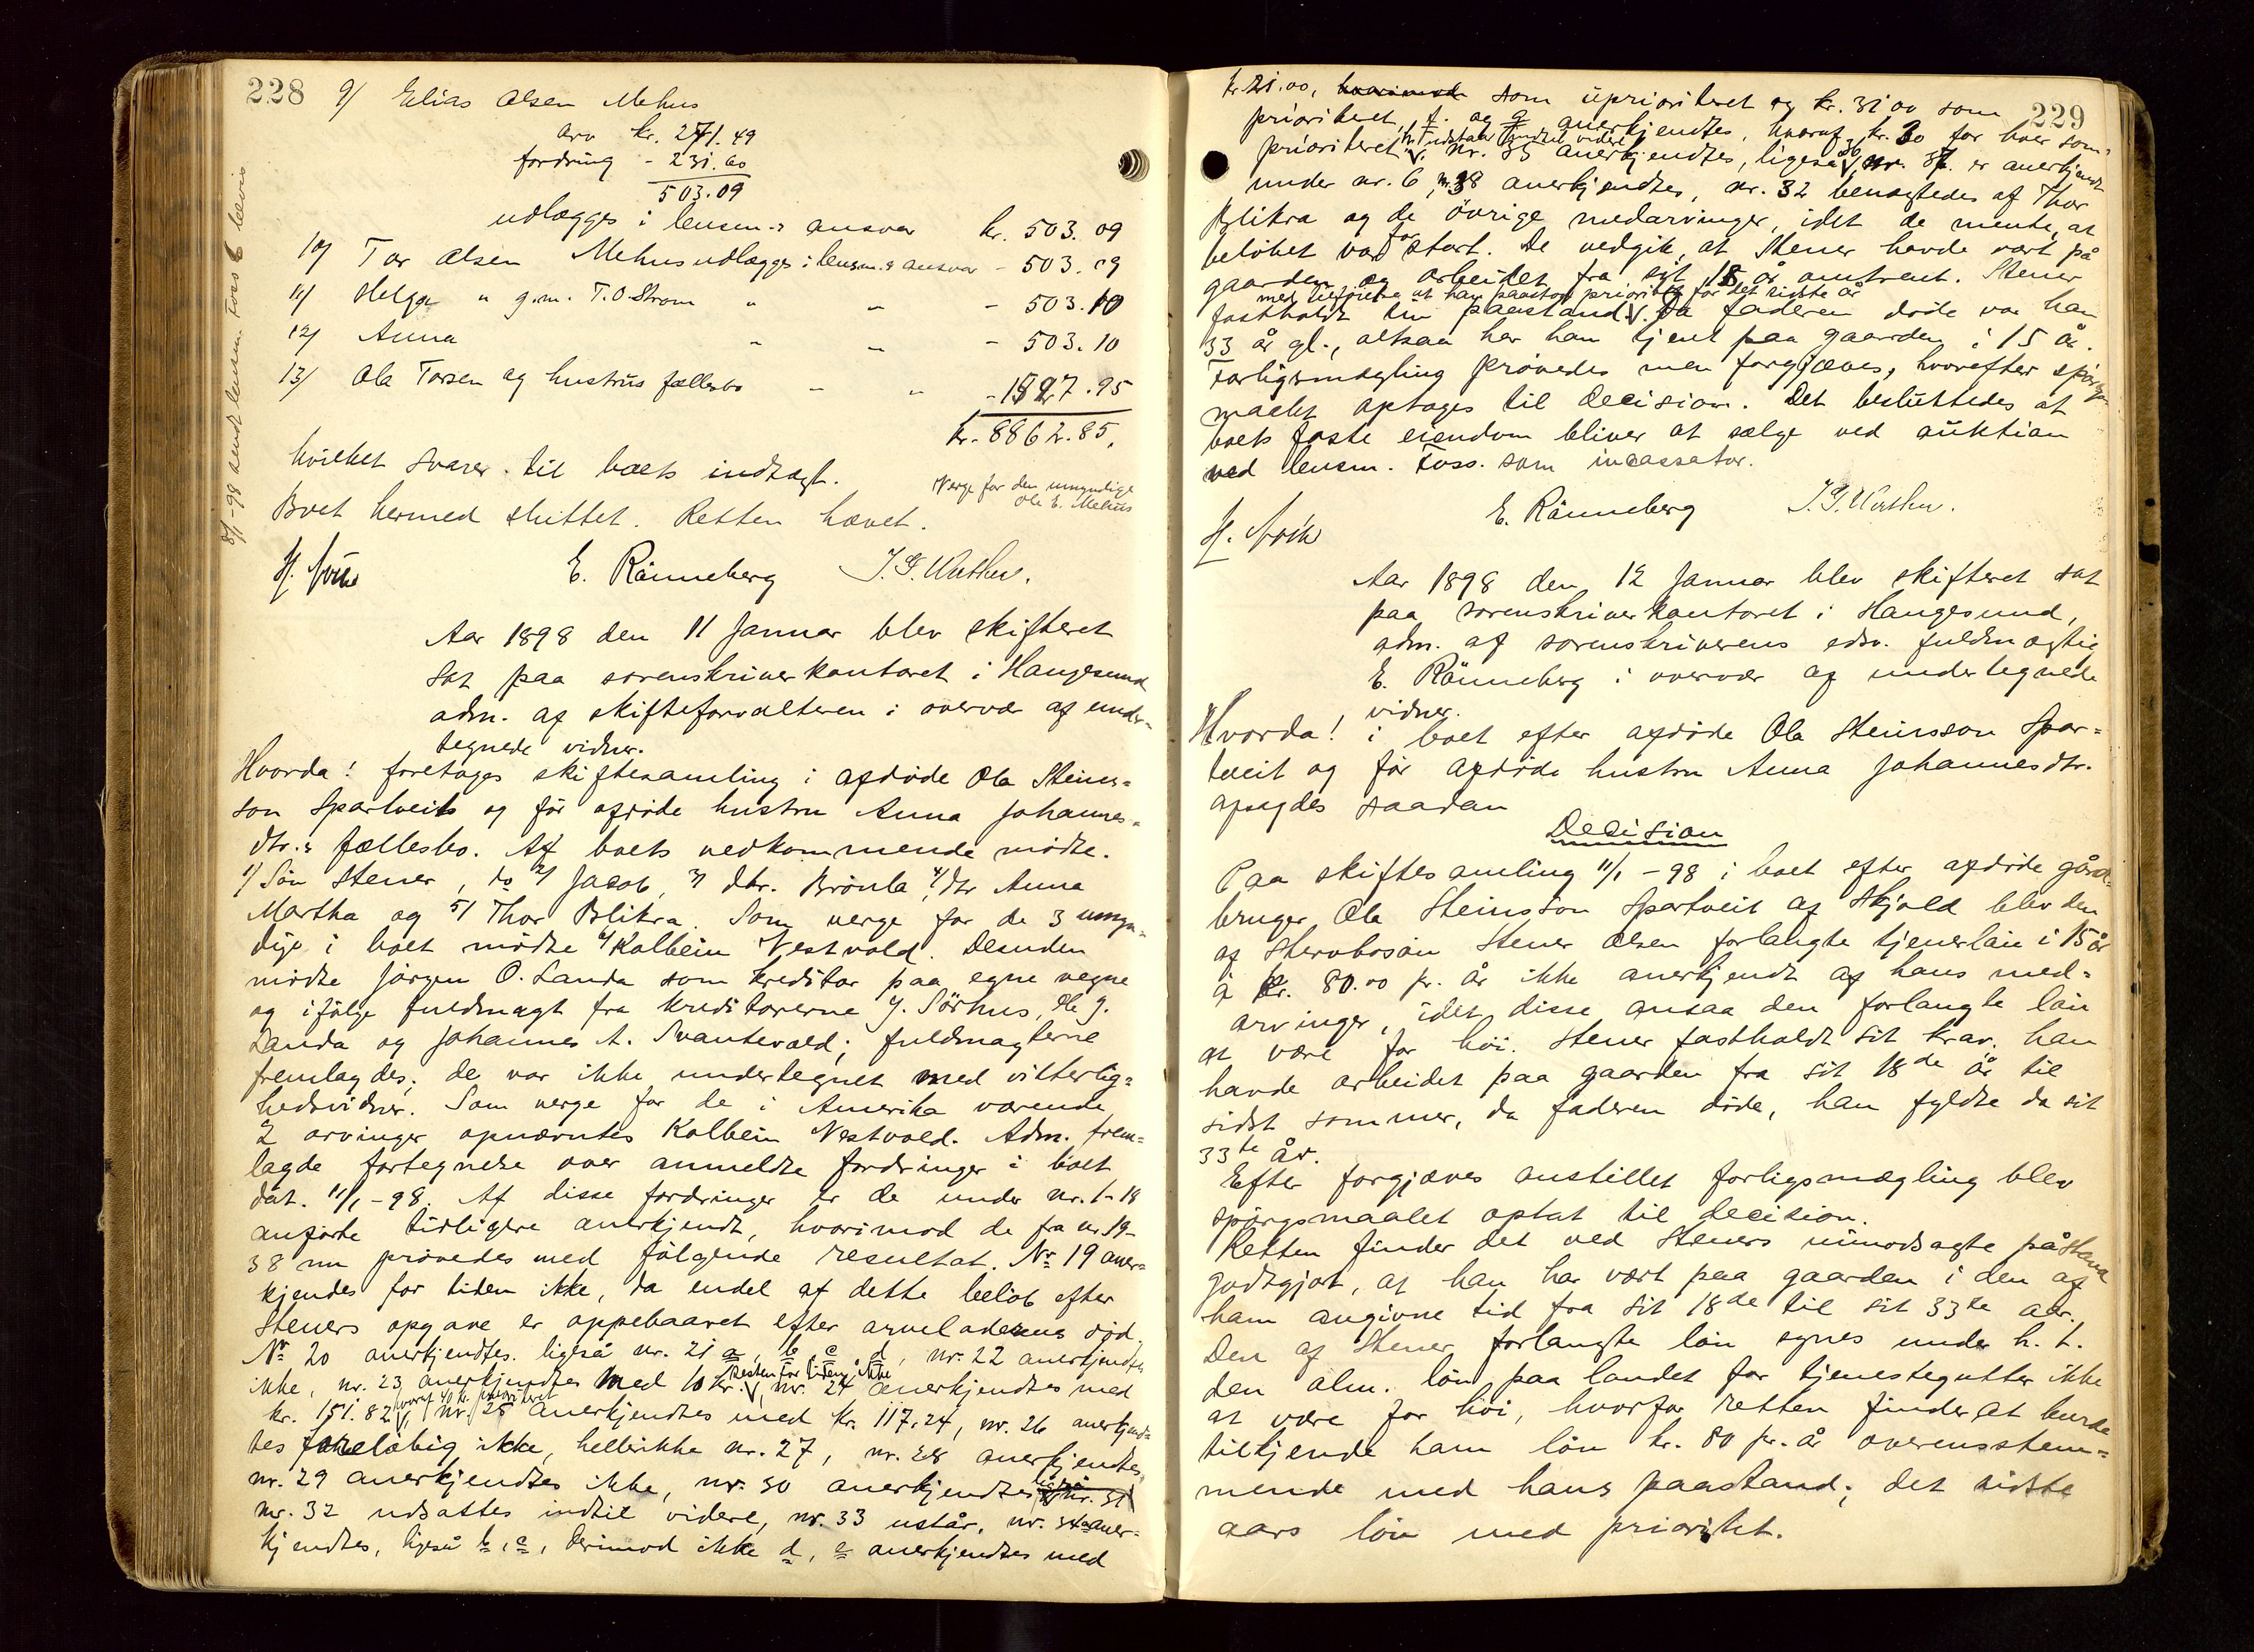 228
9/ Elias Olsen Mehus
arv kr. 271.49
fordring - 231.60
503.09
udlægges i lensm.s ansvar kr. 503.09
10/ Tor Olsen Mehus udlægges i lensm.s ansvar - 503.09
11/ Helga " g.m. T.O. Strom " " - 503.10
12/ Anna " " - 503.10
13/ Ola Torsen og hustrus fællesbo " " - 1827.95
kr. 8862.85.
hvilket svarer til boets indtægt.
Verge for den umyndige
Ole E. Mehus
Boet hermed sluttet. Retten hævet.
E. Rönneberg
8/1-98 sendt lensm. Foss 6 bevis
Aar 1898 den 11 Januar blev skifteret
sat paa sorenskriverkontoret i Haugesund
adm. af skifteforvalteren i overvær af under-
tegnede vidner.
Hvorda! foretages skiftesamling i afdöde Ola Steiners-
son Spartveits og för afdöde hustru Anna Johannes-
dtr.s fællesbo. Af boets vedkommende mödte.
1/ Sön Stener, do 2/ Jacob, 3/ dtr. Brönla, 4/ dtr Anna
Martha og 5/ Thor Blikra. Som verge for de 3 umyn-
dige i boet mödte 6/ Kolbein Vestvold. Desuden
mödte Jörgen O. Landa som kreditor paa egne vegne
og ifölge fuldmagt fra kreditorerne J. Sörhus, Ole J.
Landa og Johannes A. Svantevold; fuldmagterne
fremlagdes; de var ikke undertegnet med vitterlig-
hedsvidner. Som verge for de i Amerika værende
2 arvinger opnævntes Kolbein Vestvold. Adm. frem-
lagde fortegnelse over anmeldte fordringer i boet
dat. 11/1-98. Af disse fordringer er de under nr. 1-18
anförte tidligere anerkjendt, hvorimod de fra nr. 19-
38 nu prövedes med fölgende resultat. No 19 aner-
kjendes for tiden ikke, da endel af dette belöb efter
Steners opgave er oppebaaret efter arveladerens död.
No 20 anerkjendtes. ligeså nr. 21 a, b, c, d, nr. 22 anerkjendtes
Resten for tiden ikke
ikke, nr. 23 anerkjendtes med 10 kr. nr. 24 anerkjendtes med
hvoraf 40 kr. prioriteret
kr. 151.82, nr. 25 anerkjendtes med kr. 117.24, nr. 26 anerkjend-
tes foreløbig ikke, hellerikke nr. 27, nr. 28 anerkjendtes,
nr. 29 anerkjendtes ikke, nr. 30 anerkjendtes ligeså nr. 31
nr. 32 udsattes indtil videre, nr. 33 ustår, nr. 34 a aner-
kjendtes, ligeså b, c, derimod ikke d, e anerkjendtes med
229
kr. 21.00, hvorimod som uprioriteret og kr. 31.00 som
prioriteret, f. og g anerkjendtes, hvoraf kr. 30 for hver som
prioriteret. nr. 35 anerkjendtes, ligeså nr. 37. er anerkjendt
under nr. 6, nr. 38 anerkjendtes, nr. 32 benegtedes af Thor
Blikra og de övrige medarvinger, idet de mente, at
belöbet var for stort. De vedgik, at Stener havde vært på
gaarden og arbeidet fra sit 18 år omtrent. Stener
med tilföielse at han paastod prioritet for det sidste år
fastholdt sin paastand. Da faderen döde var han
33 år gl., altsaa har han tjent paa gaarden i 15 år.
Forligsmægling prövedes men forgjæves, hvorefter spörgs-
maalet optages til decision. Det besluttedes at
boets faste eiendom bliver at sælge ved auktion
ved lensm. Foss. som incassator.
E. Rönneberg
Aar 1898 den 12 Januar blev skifteret sat
paa sorenskriverkontoret i Haugesund,
adm. af sorenskriverens edsv. fuldmægtig
E. Rönneberg i overvær af undertegnede
vidner.
Hvorda! i boet efter afdöde Ola Steinsson Spar-
tveit og för afdöde hustru Anna Johannesdtr.
afsagdes saadan
Decision
Paa skiftesamling 11/1-98 i boet efter afdöde gård-
bruger Ola Steinsson Spartveit af Skjold blev den
af Stervbosön Stener Olsen forlangte tjenerlön i 15 år
à kr. 80.00 pr. år ikke anerkjendt af hans med-
arvinger, idet disse ansaa den forlangte lön
at være for höi. Stener fastholdt sit krav. han
havde arbeidet paa gaarden fra sit 18de år til
sidst sommer, da faderen döde, han fyldte da sit
33te år.
Efter forgjæves anstillet forligsmægling blev
spörgsmaalet optat til decision.
Retten finder det ved Steners uimodsagte påstand
godtgjort, at han har vært paa gaarden i den af
ham angivne tid fra sit 18de til sit 33te aar.
Den af Stener forlangte lön synes under h. t.
den alm. lön paa landet for tjenestegutter ikke
at være for höi, hvorfor retten finder at burde
tilkjende ham lön kr. 80 pr. år overensstem-
mende med hans paastand; det sidste
aars lön med prioritet.